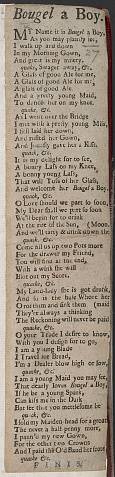 Bougel a Boy.
MY Name it is Bougel a Boy,
As you may plainly see,
I walk up and down
In my Morning Gown,
And great is my misery.
quake, &c.
A Glass of good Ale for me,
A Glass of good Ale for me;
A glass of good Ale
And a pretty young Maid,
on my knot.
quake, &c.
As I went over the Bridge
I met with a pretty young Miss,
I laid her down,
And her Gown,
And gave her a Kiss.
quake, &c.
It is my delight for to see,
A bonny Lass on my Knee,
A bonny young Lass,
That will Toss off her Glass,
And welcome her Bougel a Boy,
quack, &c.
O Love should we part so soon,
My Dear shall we part so soon
We'll begin for to
At the rise of the Sun, Moon,
And we'll merry & drink down the
quack, &c.
Come fill us up two Pots more
For the drawer my Friend,
You will find at the end,
With a wink she will
our Score,
quake, &c.
My Land-Lady she is got drunk,
And is in the hole Where her
man
They're always a thinking
The Reckoning will never be paid
quake, &c.
O your Trade I desire to know,
With you I design for to go,
I am a young Blade
I Travel for Bread,
I'm a Dealer blow high or low,
quake, &c.
I am a young Maid you may see,
The dearly loves Bougel a Boy,
If he be a young Spark,
Can kiss me in the Dark
quack, &c.
I hold my Maiden-head for a groat
The never a half-penny more,
I pawn'd my new Gown,
For the other two Crowns
And I paid the Old Baud her
quake &c.
FINIS.